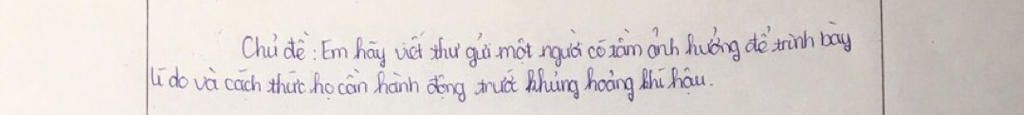 Chủ đề: Em hãy viết thư gửi một người có tầm ảnh hưởng để trình bày
lí do và cách thức họ cần hành động trước khủng hoảng khí hậu.